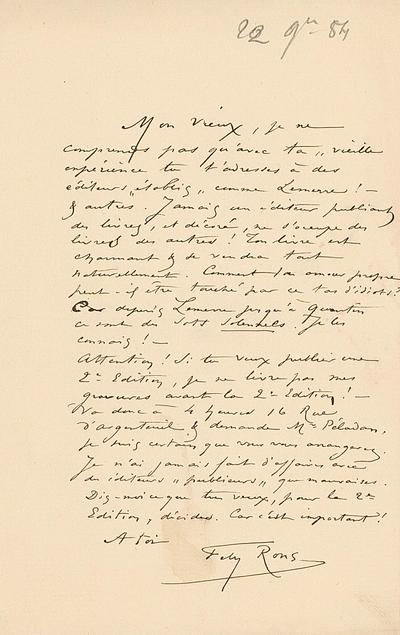 22 9bre 84
Mon Vieux, je ne
comprends pas qu'avec ta „ vieille
expérience tu t'adresses à des
éditeurs „établis„ comme Lemerre ! —
& autres. Jamais un éditeur publiant
des livres, et décoré, ne s'occupe des
livres des autres ! Ton livre est
charmant & se vendra tout
naturellement. Comment ton amour propre
peut-il être touché par ce tas d'idiots?
Car depuis Lemerre jusqu'à Quantin
ce sont des Sots Solennels. Je les
connais ! —
Attention ! Si tu veux publier une
2e Edition, je ne livre pas mes
gravures avant la 2e Edition ! —
Va donc à 4 heures 16 Rue
d'argenteuil & demande Mr Péladan,
je suis certain que vous vous arrangerez.
Je n'ai jamais fait d'affaires avec
des éditeurs „ publieurs„ que mauvaises.
Dis-moi ce que tu veux, pour la 2e
Edition, décides. Car c'est important !
A toi
Fély Rops